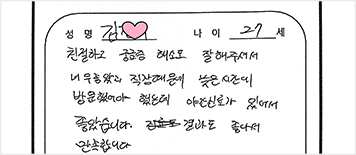 성 명 김 나 이 27 세
친절하고 궁금증 해소도 잘해주셔서
너무 좋았고 직장때문에 늦은시간에
방문했어야 했는데 야간진료가 있어서
좋았습니다. 결과도 좋아서
만족합니다